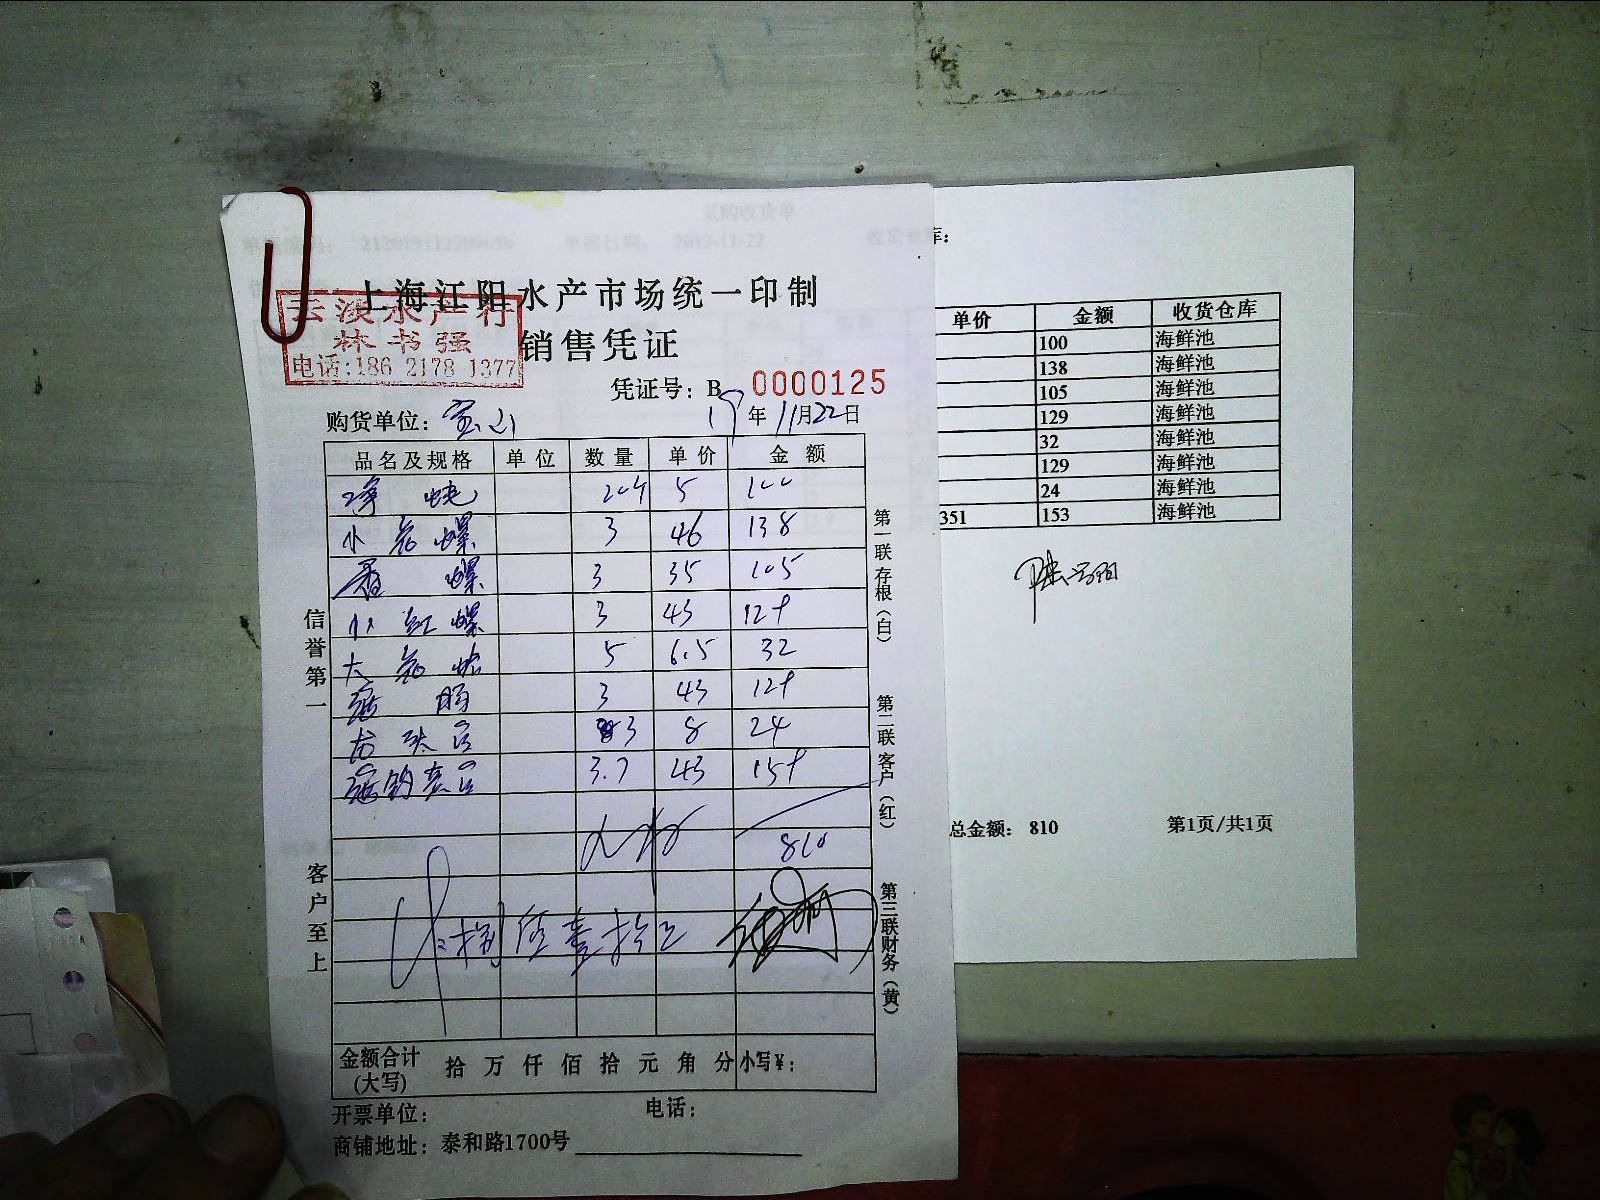 采购收货单
2019-11-22
库:
上海江阳水产市场统一印制
云淡水产行
林书强
电话:186 2178 1377
销售凭证
凭证号: B 0000125
购货单位: 宝山 19年11月22日
品名及规格 单位 数量 单价 金额
净 5 100
小花螺 3 46 138
香螺 3 35 105
小红螺 3 43 129
大花蛤 5 6.5 32
3 43 129
3 8 24
3.7 43 159
810
捌佰壹拾元
金额合计(大写) 拾 万 仟 佰 拾 元 角 分 小写¥:
开票单位: 电话:
商铺地址: 泰和路1700号
信誉第一
客户至上
第一联存根(白)
第二联客户(红)
第三联财务(黄)
单价 金额 收货仓库
100 海鲜池
138 海鲜池
105 海鲜池
129 海鲜池
32 海鲜池
129 海鲜池
24 海鲜池
351 153 海鲜池
总金额: 810 第1页/共1页